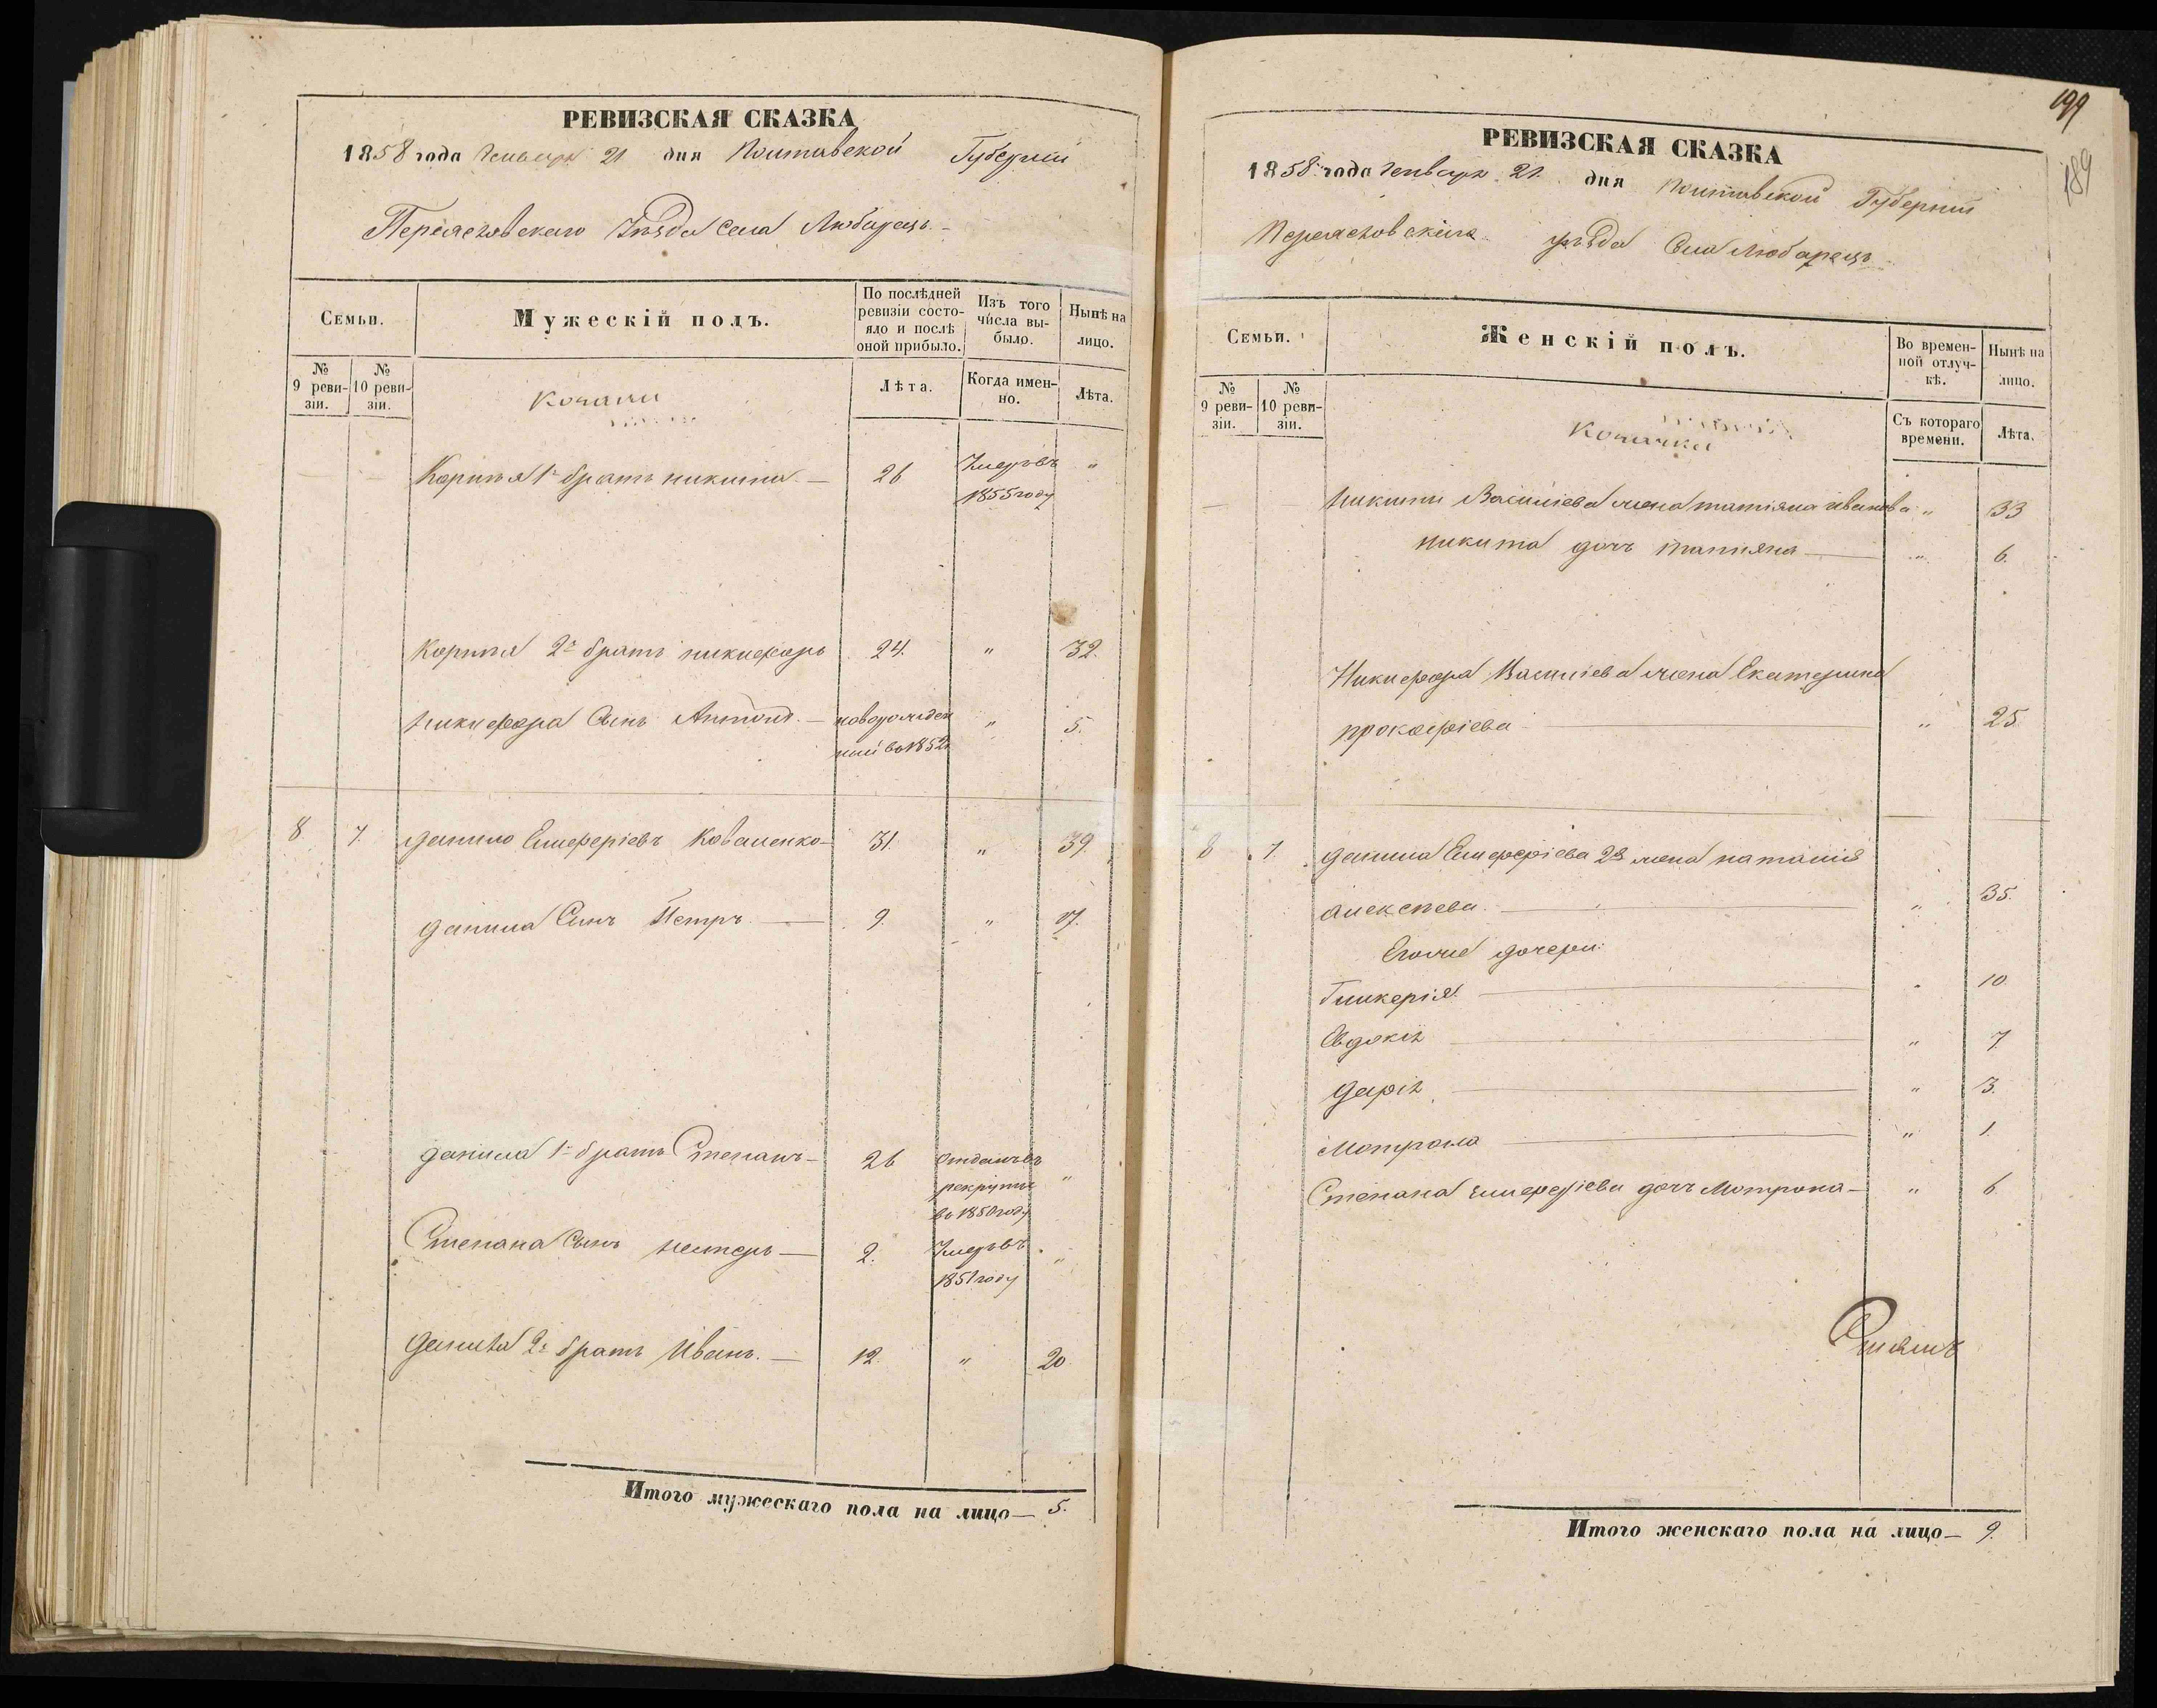 РЕВИЗСКАЯ СКАЗКА
1858 года Генваря 21 дня Полтавской Губерніи
Переясловскаго Уѣзда Села Любарецъ
Семьи.
Мужескій полъ.
По послѣдней ревизіи состояло и послѣ оной прибыло.
Изъ того числа выбыло.
Нынѣ на лицо.
№ 9 ревизіи.
№ 10 ревизіи.
Лѣта.
Когда именно.
Лѣта.
Козаки
Карпъя 1й братъ никита — 26 Умеръ въ 1855 году "
Карпъя 2й братъ никифоръ 24. " 32.
никифора Сынъ Антонъ. — новорожденный во 1852 " 5.
8 7. данило Елиферіевъ Коваленко — 31. " 39.
данила Сынъ Петръ — 9. " 17.
данила 1й братъ Степанъ — 26 отданъ въ рекруты въ 1850 году "
Степана Сынъ нестеръ — 2. Умеръ въ 1851 году "
данила 2й братъ Иванъ. — 12. " 20
Итого мужескаго пола на лицо — 5.
199
189
РЕВИЗСКАЯ СКАЗКА
1858 года Генваря 21 дня Полтавской Губерніи
Переясловскаго уѣзда Села Любарецъ
Семьи.
Женскій полъ.
Во временной отлучкѣ.
Нынѣ на лицо.
№ 9 ревизіи.
№ 10 ревизіи.
Съ котораго времени.
Лѣта.
Козачки
никиты Василіева жена татіяна иванова " 33
никита дочь татіяна — " 6.
Никифора Василіева жена Екатерина
прокофіева — " 25.
8 7. данила Елиферіева 2я жена наталія
алексѣева — " 35.
Егоже дочери:
Гликерія — " 10
Евдокія — " 7
дарія — " 3.
Мотрона — " 1.
Степана елиферіева дочь Мотрона — " 6
Итого женскаго пола на лицо — 9.